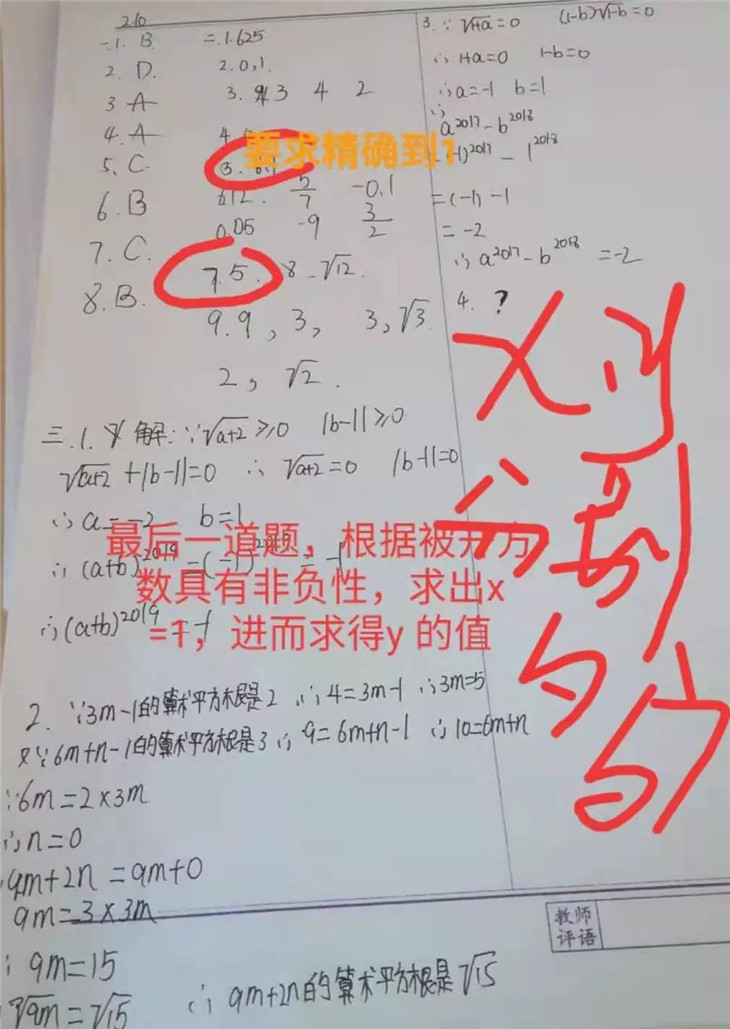 210
一.1. B
2. D.
3 A
4. A
5. C.
6. B
7. C.
8. B.
二.1.625
2.0,1.
3. 3 4 2
4.
612. 5/7 -0.1
0.05 -9 3/2
7.5. 8 -√12.
9.9, 3, 3,√3.
2, √2.
要求精确到1
3. ∵ √1+a=0 (1-b)√1-b=0
∴ 1+a=0 1-b=0
∴a=-1 b=1
∴
a²⁰¹⁷-b²⁰¹⁸
-1)²⁰¹⁷ - 1²⁰¹⁸
=(-1)-1
=-2
∴a²⁰¹⁷-b²⁰¹⁸ =-2
4. ?
三.1. 解:∵√a+2≥0 |b-1|≥0
√a+2+|b-1|=0 ∴√a+2=0 |b-1|=0
∴a=-2 b=1
∴(a+b)²⁰¹⁹=(-1)²⁰¹⁹=-1
∴(a+b)²⁰¹⁹=-1
最后一道题，根据被开方
数具有非负性，求出x
=1，进而求得y 的值
2. ∵3m-1的算术平方根是2 ∴4=3m-1 ∴3m=5
又∵6m+n-1的算术平方根是3∴9=6m+n-1 ∴10=6m+n
∵6m=2×3m
∴n=0
9m+2n=9m+0
9m=3×3m
∴9m=15
√9m=√15 ∴9m+2n的算术平方根是√15
教师
评语